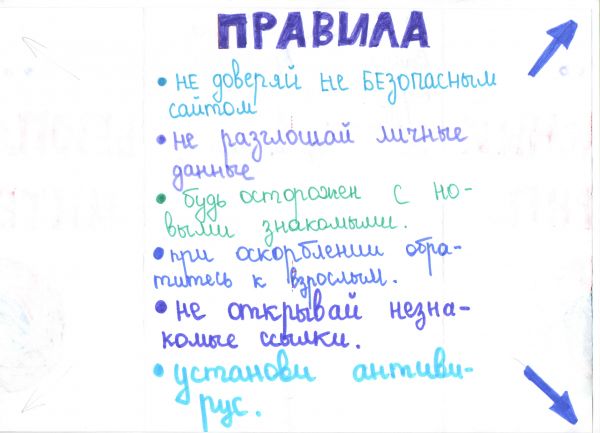 ПРАВИЛА
• не доверяй не БЕЗОПАСНЫМ
сайтом
• не разглошай личные
данные
• будь осторожен с но-
выми знакомыми.
• при оскорблении обра-
титесь к взрослым.
• не открывай незна-
комые ссылки.
• установи антиви-
рус.